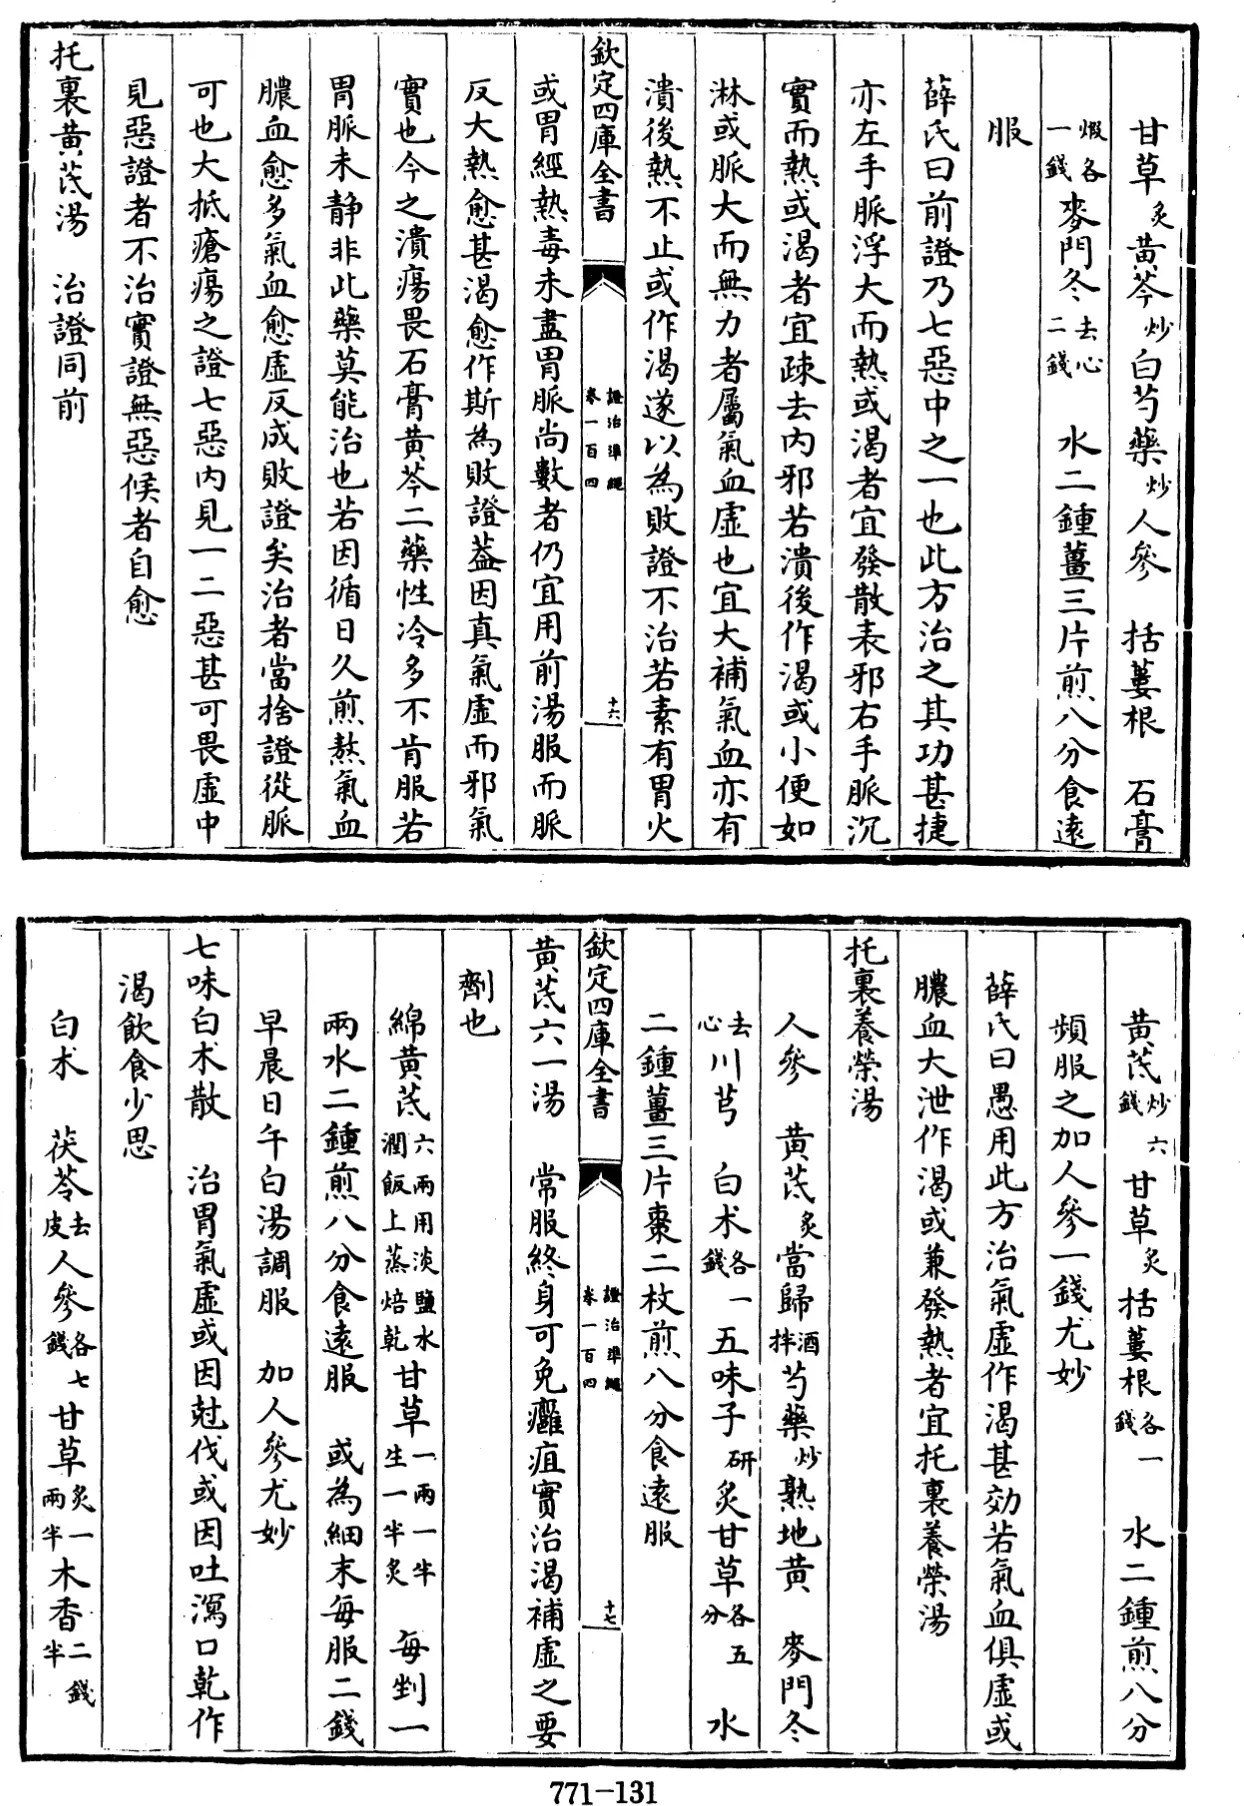 甘草炙黄芩炒白芍藥炒人參　括蔞根　石膏
煅各一錢麥門冬去心二錢　水二鍾薑三片煎八分食遠
服
薛氏曰前證乃七惡中之一也此方治之其功甚捷
亦左手脈浮大而熱或渴者宜發散表邪右手脈沉
實而熱或渴者宜疎去内邪若潰後作渴或小便如
淋或脈大而無力者屬氣血虚也宜大補氣血亦有
潰後熱不止或作渴遂以為敗證不治若素有胃火
欽定四庫全書
證治準繩
卷一百四
十六
或胃經熱毒未盡胃脈尚數者仍宜用前湯服而脈
反大熱愈甚渴愈作斯為敗證葢因真氣虚而邪氣
實也今之潰瘍畏石膏黄芩二藥性冷多不肯服若
胃脈未静非此藥莫能治也若因循日久煎熬氣血
膿血愈多氣血愈虚反成敗證矣治者當捨證從脈
可也大抵瘡瘍之證七惡内見一二惡甚可畏虚中
見惡證者不治實證無惡候者自愈
托裏黄芪湯　治證同前
黄芪炒六錢　甘草炙括蔞根各一錢　水二鍾煎八分
頻服之加人參一錢尤妙
薛氏曰愚用此方治氣虚作渴甚効若氣血俱虚或
膿血大泄作渴或兼發熱者宜托裏養榮湯
托裏養榮湯
人參　黄芪炙當歸酒拌芍藥炒熟地黄　麥門冬
去心川芎　白术各一錢五味子研炙甘草各五分　水
二鍾薑三片棗二枚煎八分食遠服
欽定四庫全書
證治準繩
卷一百四
十七
黄芪六一湯　常服終身可免癰疽實治渴補虚之要
劑也
綿黄芪六兩用淡鹽水潤飯上蒸焙乾甘草一兩一半生一半炙　每剉一
兩水二鍾煎八分食遠服　或為細末每服二錢
早晨日午白湯調服　加人參尤妙
七味白术散　治胃氣虚或因尅伐或因吐瀉口乾作
渴飲食少思
白术　茯苓去皮人參各七錢甘草炙一兩半木香二錢半
771-131